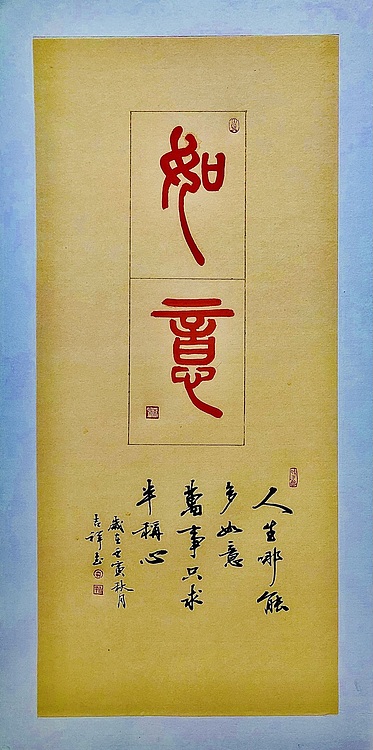 如意
人生哪能
多如意
萬事只求
半稱心
歲在壬寅秋月
吉祥書